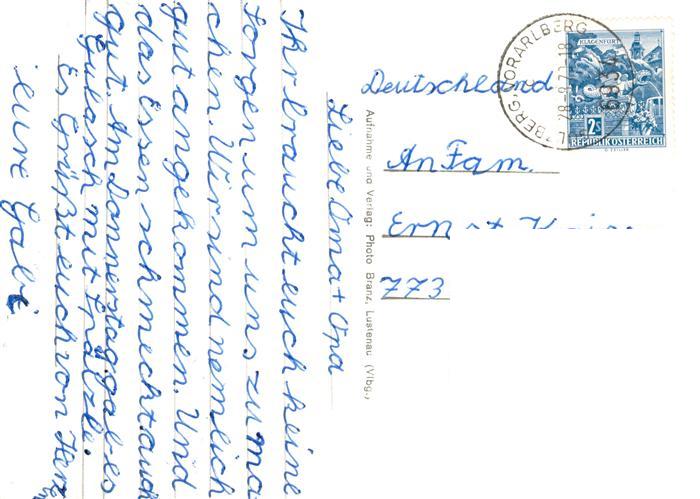 Liebe Oma + Opa
Ihr braucht euch keine
Sorgen um uns zu ma
chen. Wir sind nemlich
gut angekommen. Und
das Essen schmeckt auch
gut. Am Donnerstag gab es
Gulasch mit Spätzle.
Es Grüßt euch von Herz
eure Gabi
Aufnahme und Verlag: Photo Branz, Lustenau (Vlbg.,
Deutschland
An Fam.
Ernst
773
KLAGENFURT
2S
REPUBLIK ÖSTERREICH
VORARLBERG
6934